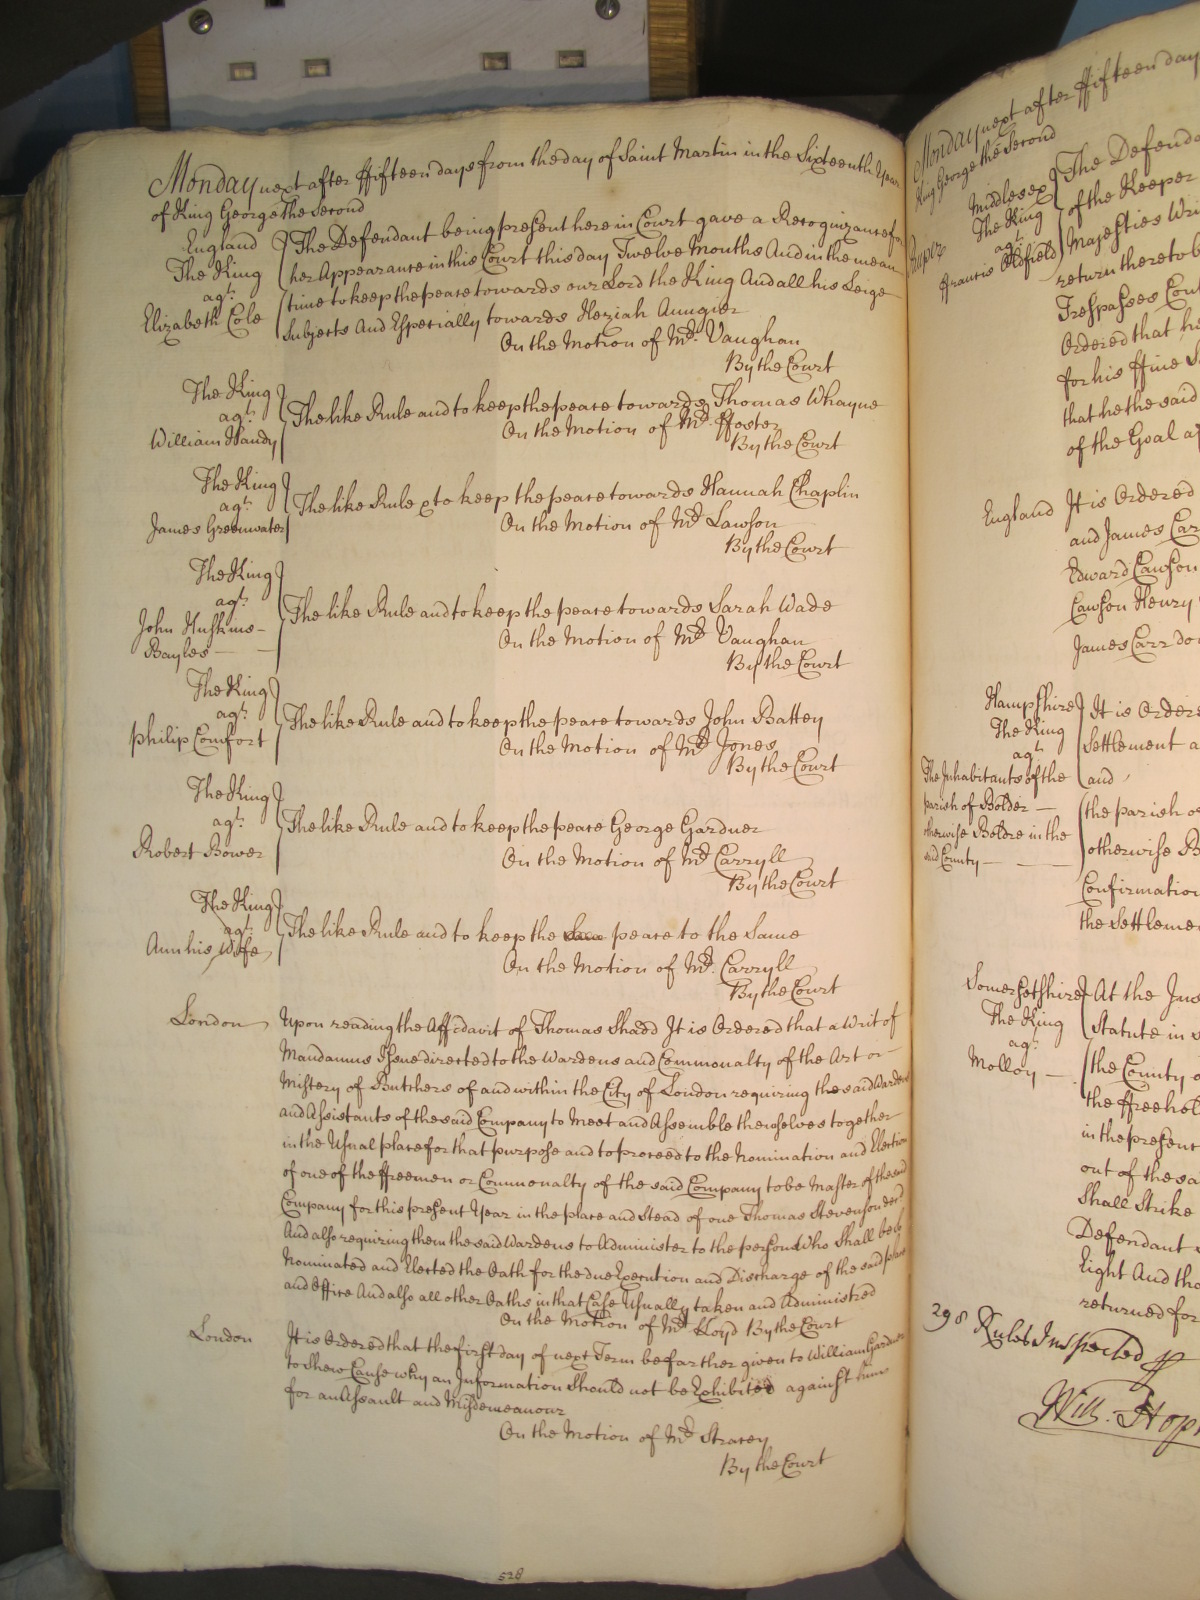 Monday next after ffifteen days from the day of Saint Martin in the Sixteenth Year
of King George the Second
England
The King
agt.
Elizabeth Cole
The Defendant being present here in Court gave a Recognizance for
her Appearance in this Court this day Twelve Months And in the mean
time to keep the peace towards our Lord the King And all his Leige
Subjects And Especially towards Keziah Aungier
On the Motion of Mr. Vaughan
By the Court
The King
agt.
William Handy
The like Rule and to keep the peace towards Thomas Whayne
On the Motion of Mr. ffoster
By the Court
The King
agt.
James Greenwater
The like Rule & to keep the peace towards Hannah Chaplin
On the Motion of Mr. Lawson
By the Court
The King
agt.
John Huskins
Bayles
The like Rule and to keep the peace towards Sarah Wade
On the Motion of Mr. Vaughan
By the Court
The King
agt.
Philip Comfort
The like Rule and to keep the peace towards John Battey
On the Motion of Mr. Jones
By the Court
The King
agt.
Robert Bower
The like Rule and to keep the peace George Gardner
On the Motion of Mr. Carryll
By the Court
The King
agt.
Ann his Wife
The like Rule and to keep the peace to the Same
On the Motion of Mr. Carryll
By the Court
London
Upon reading the Affidavit of Thomas Shadd It is Ordered that a Writ of
Mandamus Issue directed to the Wardens and Commonalty of the Art or
Mistery of Butchers of and within the City of London requiring the said Wardens
and Assistants of the said Company to Meet and Assemble themselves together
in the Usual place for that purpose and to proceed to the Nomination and Election
of one of the ffreemen or Commonalty of the said Company to be Master of the said
Company for this present Year in the place and Stead of one Thomas Stevenson decd
And also requiring them the said Wardens to Administer to the person Who Shall be so
Nominated and Elected the Oath for the due Execution and Discharge of the said place
and Office And also all other Oaths in that Case Usually taken and Administred
On the Motion of Mr. Lloyd By the Court
London
It is Ordered that the first day of next Term be farther given to William Gardner
to Shew Cause why an Information Should not be Exhibited against him
for an Assault and Misdemeanour
On the Motion of Mr. Stracey
By the Court
528
Monday next after ffifteen day
King George the Second
Middlesex
The King
agt.
Francis Oldfield
The Defend
of the Keeper
Majesties Wri
return thereto b
Trespasses Con
Ordered that he
for his ffine
that he the said
of the Goal a
England
It is Ordered
and James Car
Edward Cawson
Cawson Henry
James Carr do
Hampshire
The King
agt.
The Inhabitants of the
parish of Bolder
otherwise Boldre in the
said County
It is Ordere
Settlement a
and
the parish o
otherwise B
Confirmation
the Settleme
Somersetshire
The King
agt.
Molloy
At the Ins
Statute in
the County o
the ffreehol
in the present
out of the sa
Shall Strike
Defendant
Eight And tho
returned for
298 Rules Inspected p
Will. Hop